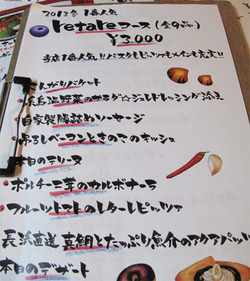 2013冬 1番人気
retareコース(全9品)
¥3,000
当店1番人気!!パスタもピッツァもメインも充実!!
・こんがりバケット
・糸島温野菜のサラダ☆ジュレドレッシング添え
・自家製腸詰めソーセージ
・吊るしベーコンときのこのキッシュ
・本日のテリーヌ
・ポルチーニ茸のカルボナーラ
・フルーツトマトのレターレピッツァ
・長浜直送 真鯛とたっぷり魚介のアクアパッツァ
・本日のデザート